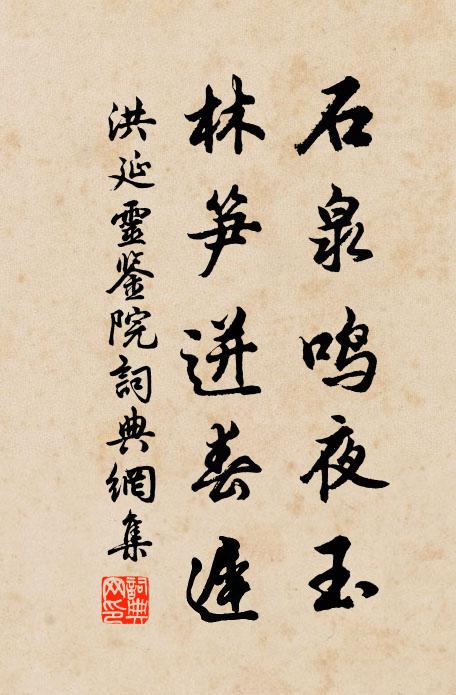 石泉鳴夜玉
林笋迸春遲
洪延靈鉴院詞典網集
詞典
网印